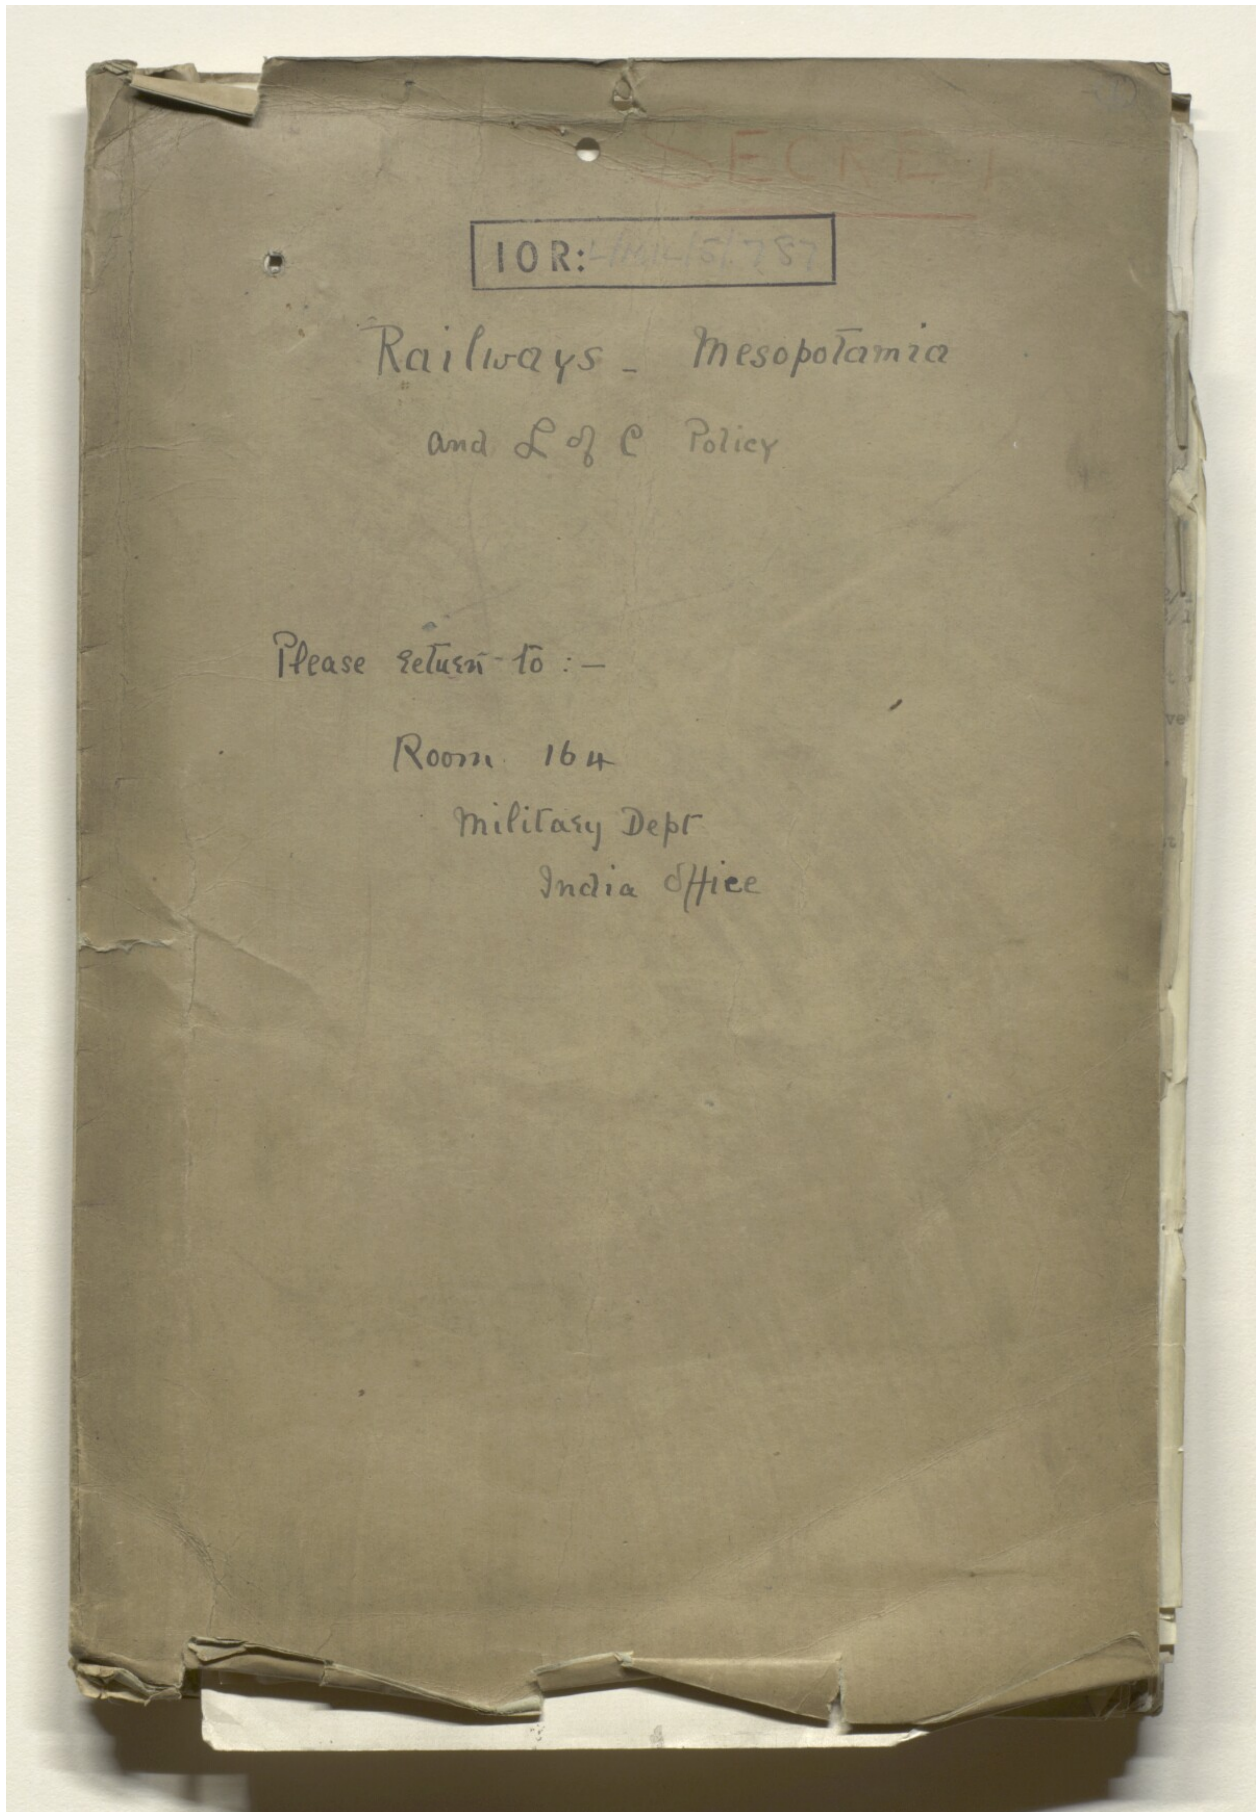 SECRET
IOR: L/MIL/5/787
Railways - Mesopotamia
and L of C Policy
Please return to : -
Room 164
Military Dept
India Office
ve